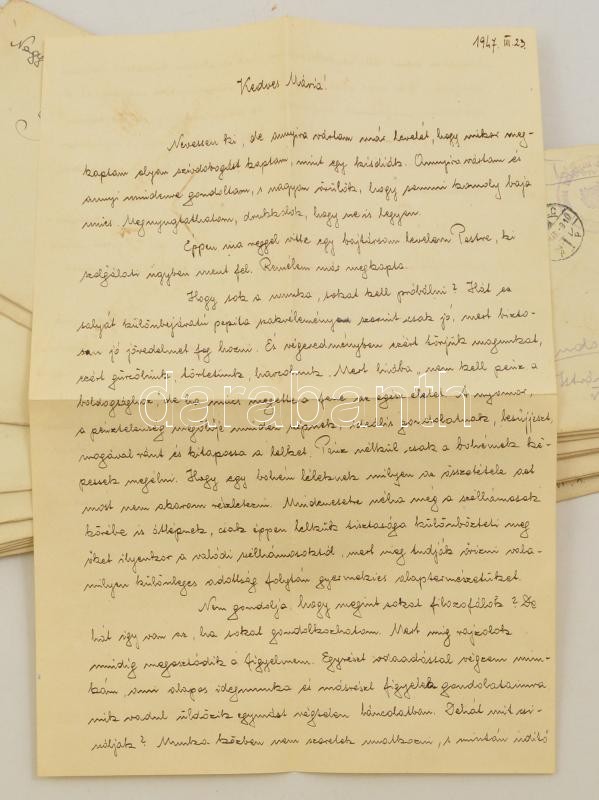 1947. III. 23.
Kedves Mária!
Nevessen ki, de annyira vártam már levelét, hogy mikor meg-
kaptam olyan szívdobogást kaptam, mint egy kisdiák. Annyira vártam és
annyi mindenre gondoltam, s nagyon örülök, hogy semmi komoly baja
nincs. Megnyugtathatom, drukkolok, hogy ne is legyen.
Éppen ma reggel vitte egy bajtársam levelem Pestre, ki
szolgálati ügyben ment fel. Remélem már megkapta.
Hogy sok a munka, sokat kell próbálni? Hát ez
saját különbejáratú pepita szakvéleményem szerint csak jó, mert bizto-
san jó jövedelmet fog hozni. És végeredményben ezért törjük magunkat,
ezért gürcölünk, törtetünk, harcolunk. Mert hiába, nem kell pénz a
boldogsághoz, de ha nincs megette a fene az egész életet. A nyomor,
a pénztelenség megölője minden szépnek, ideális gondolatnak, beszűjjeszt,
magával ránt és kitapossa a lelket. Pénz nélkül csak a bohémek ké-
pesek megélni. Hogy egy bohém léleknek milyen az összetétele azt
most nem akarom részletezni. Mindenesetre néha még a szélhámosok
körébe is átlépnek, csak éppen lelkük tisztasága különbözteti meg
őket ilyenkor a valódi szélhámosoktól, mert meg tudják őrizni vala-
milyen különleges adottság folytán gyermekies alaptermészetüket.
Nem gondolja, hogy megint sokat filozofálok? De
hát így van ez, ha sokat gondolkozhatom. Mert míg rajzolok
mindig megosztódik a figyelmem. Egyrészt odaadással végzem mun-
kám, ami alapos idegmunka és másrészt figyelek gondolataimra,
mik vadul üldözik egymást végtelen láncolatban. Dehát mit csi-
náljak? Munka közben nem szeretek unatkozni, s mintán üdítő
darabanth
Nagy